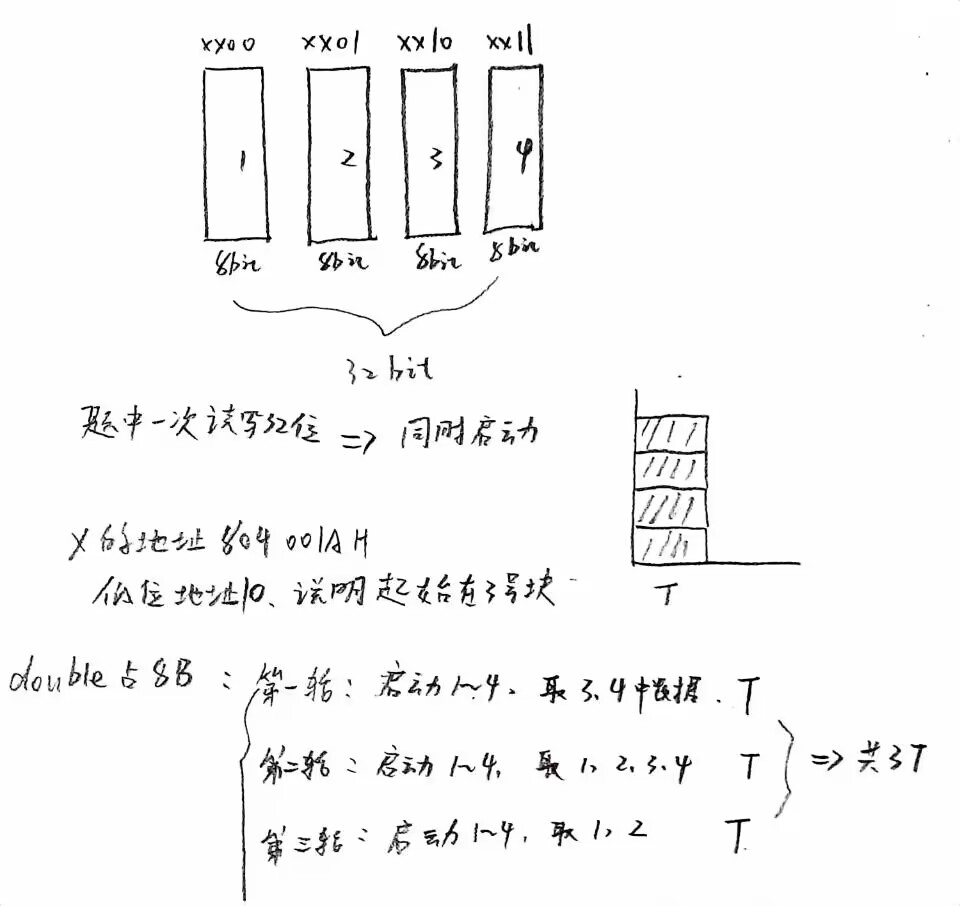 xx00 xx01 xx10 xx11
1 2 3 4
8bit 8bit 8bit 8bit
32bit
题中一次读写32位 => 同时启动
T
X的地址 804 001A H
低位地址10、说明起始在3号块
double占8B：第一轮：启动1~4、取3.4中数据. T
第二轮：启动1~4, 取1、2.3.4 T => 共3T
第三轮：启动1~4, 取1、2 T